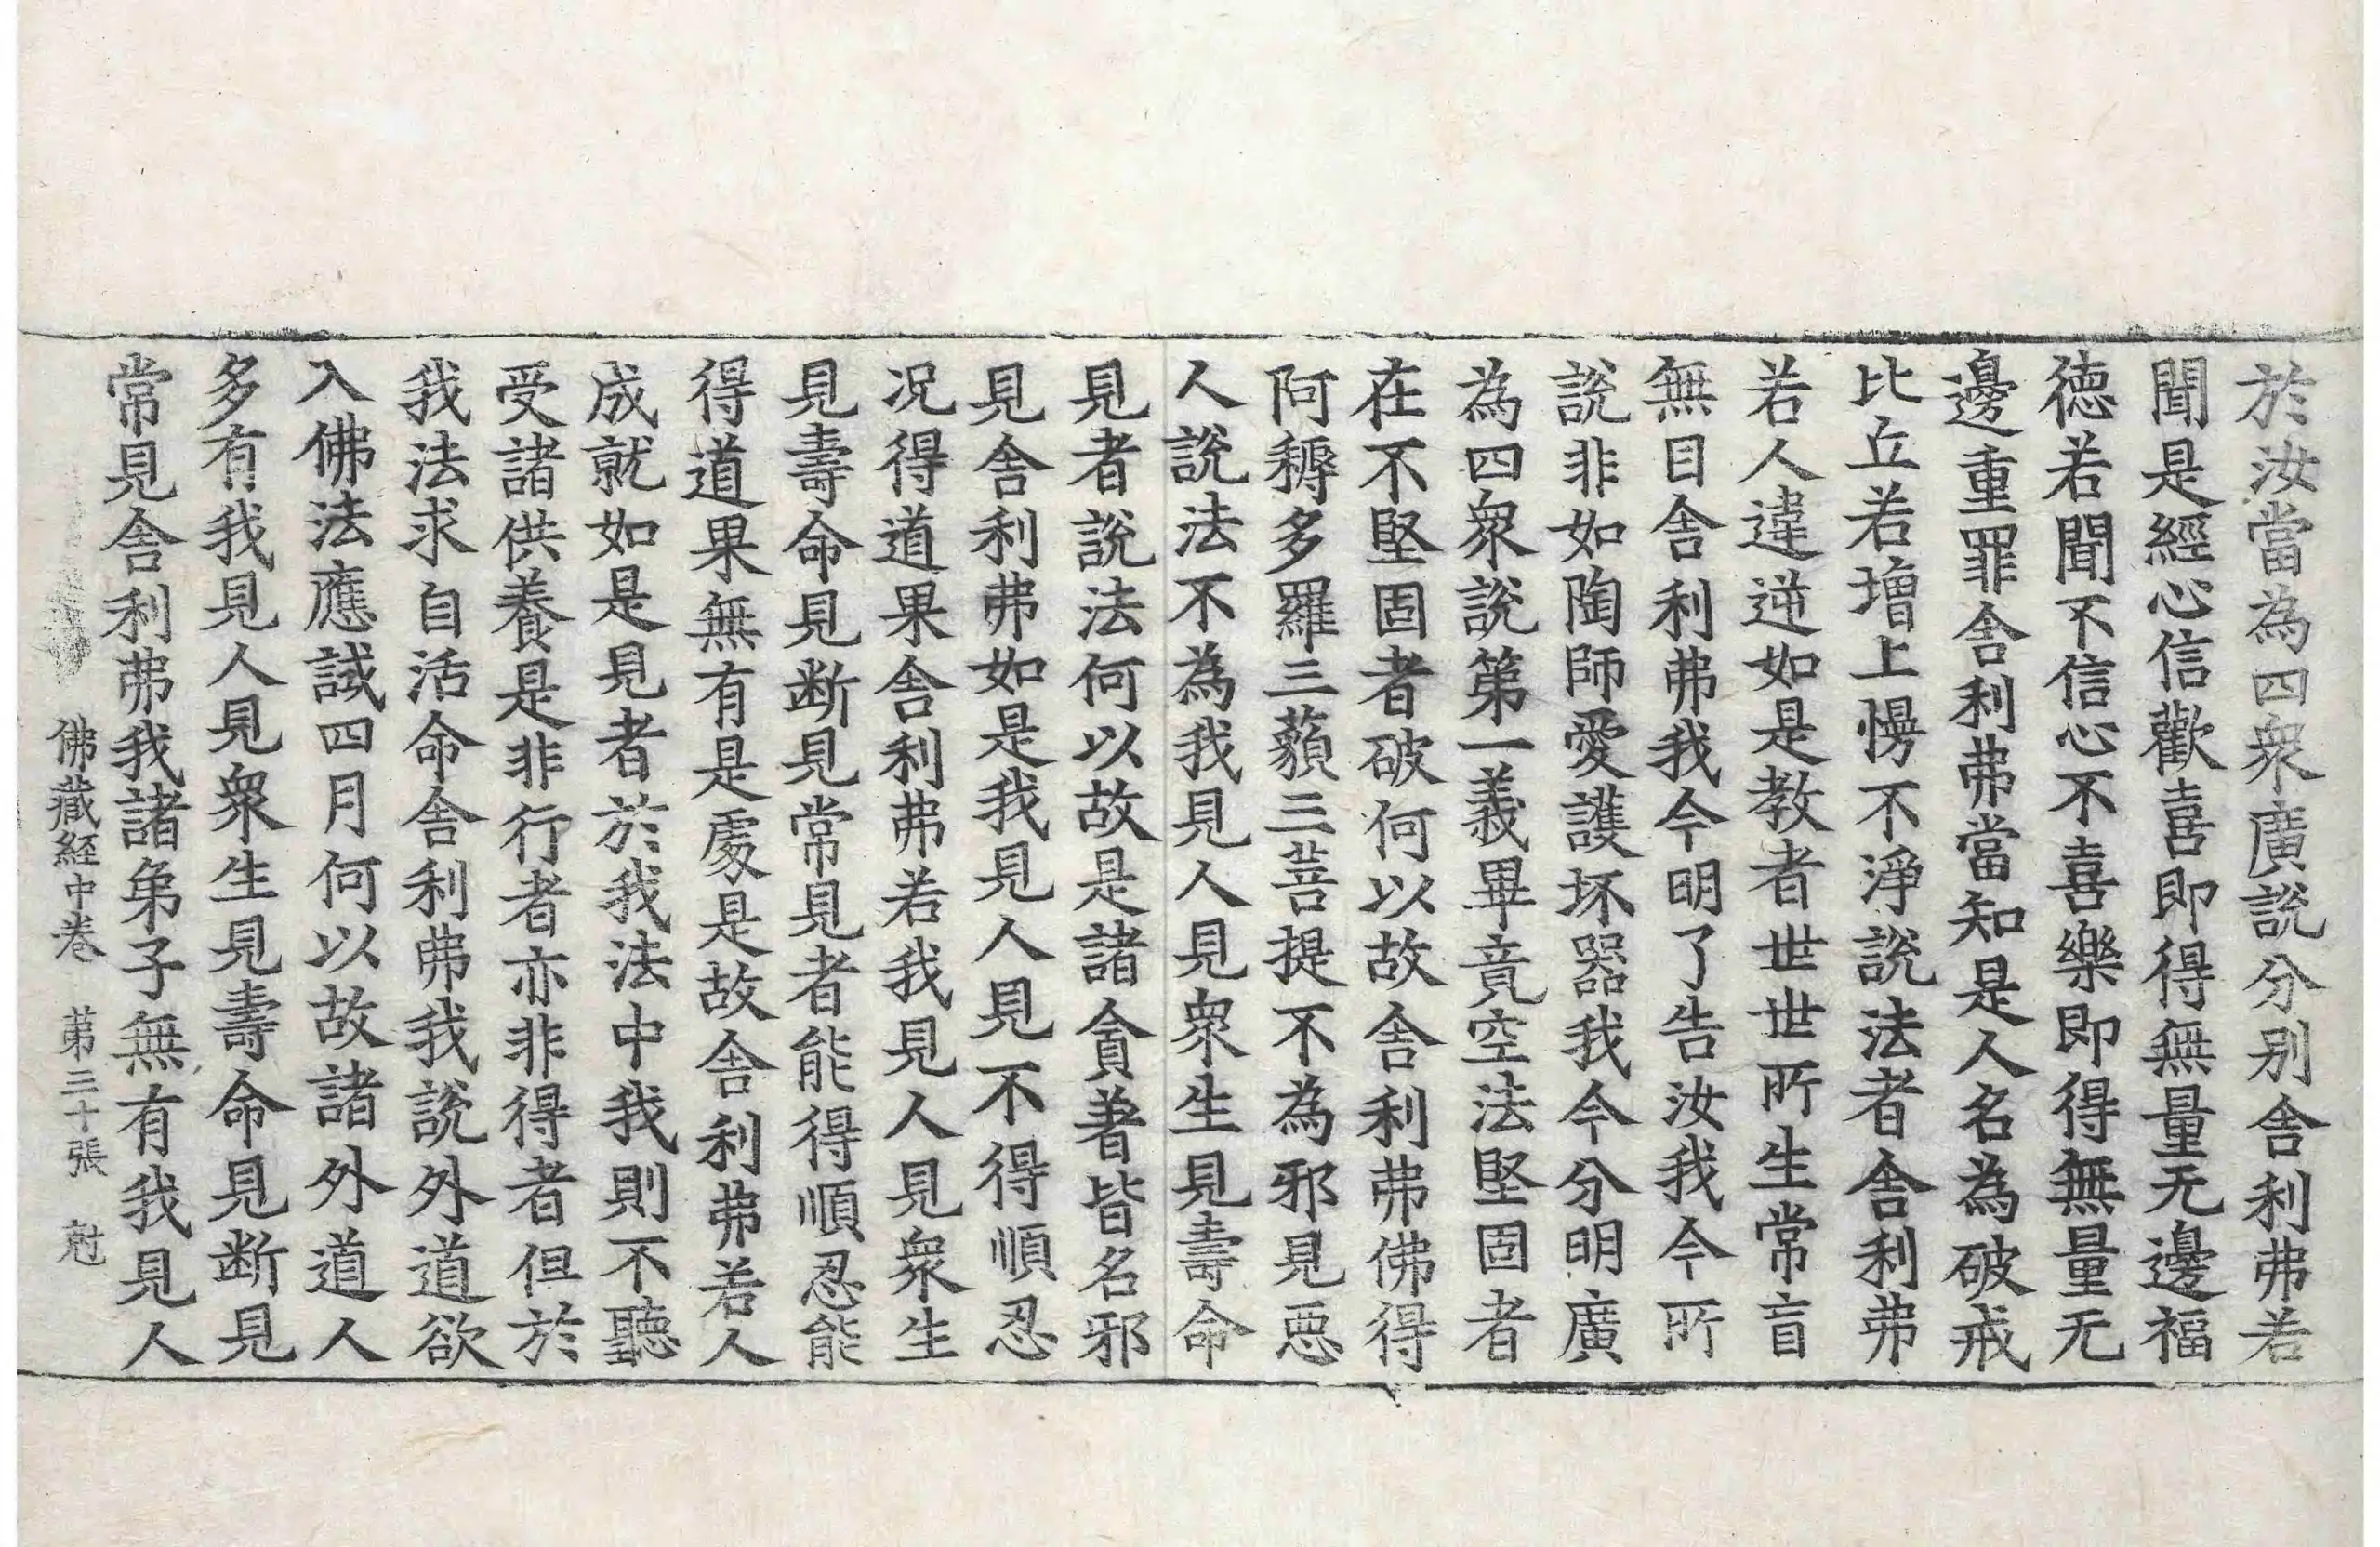 於汝當為四衆廣説分别舎利弗若
聞是經心信歡喜即得無量无邊福
德若聞不信心不喜樂即得無量无
邊重罪舎利弗當知是人名為破戒
比丘若増上慢不淨説法者舎利弗
若人違逆如是教者世世所生常盲
無目舎利弗我今明了告汝我今所
説非如陶師愛護坏器我今分明廣
為四衆説第一義畢竟空法堅固者
在不堅固者破何以故舎利弗佛得
阿耨多羅三藐三菩提不為邪見惡
人説法不為我見人見衆生見壽命
見者説法何以故是諸貪著皆名邪
見舎利弗如是我見人見不得順忍
况得道果舎利弗若我見人見衆生
見壽命見断見常見者能得順忍能
得道果無有是處是故舎利弗若人
成就如是見者於我法中我則不聽
受諸供養是非行者亦非得者但於
我法求自活命舎利弗我説外道欲
入佛法應試四月何以故諸外道人
多有我見人見衆生見壽命見断見
常見舎利弗我諸弟子無有我見人
佛藏経中卷 第三十張 尅